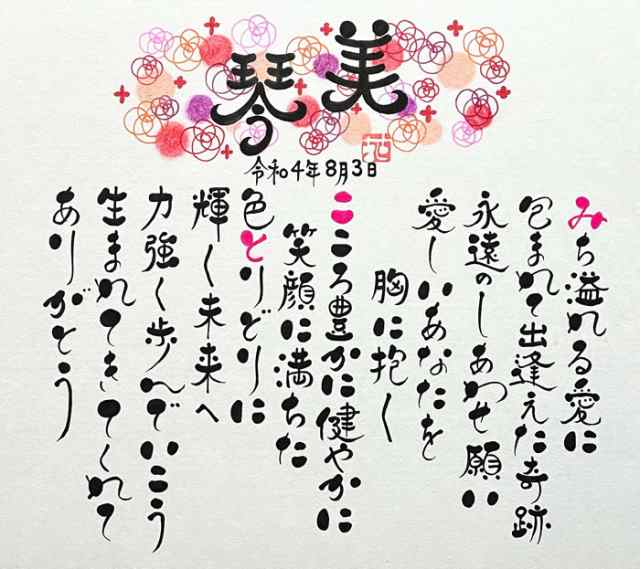 美琴
令和4年8月3日
みち溢れる愛に
包まれて出逢えた奇跡
永遠のしあわせ願い
愛しいあなたを
胸に抱く
こころ豊かに健やかに
笑顔に満ちた
色とりどりに
輝く未来へ
力強く歩んでいこう
生まれてきてくれて
ありがとう